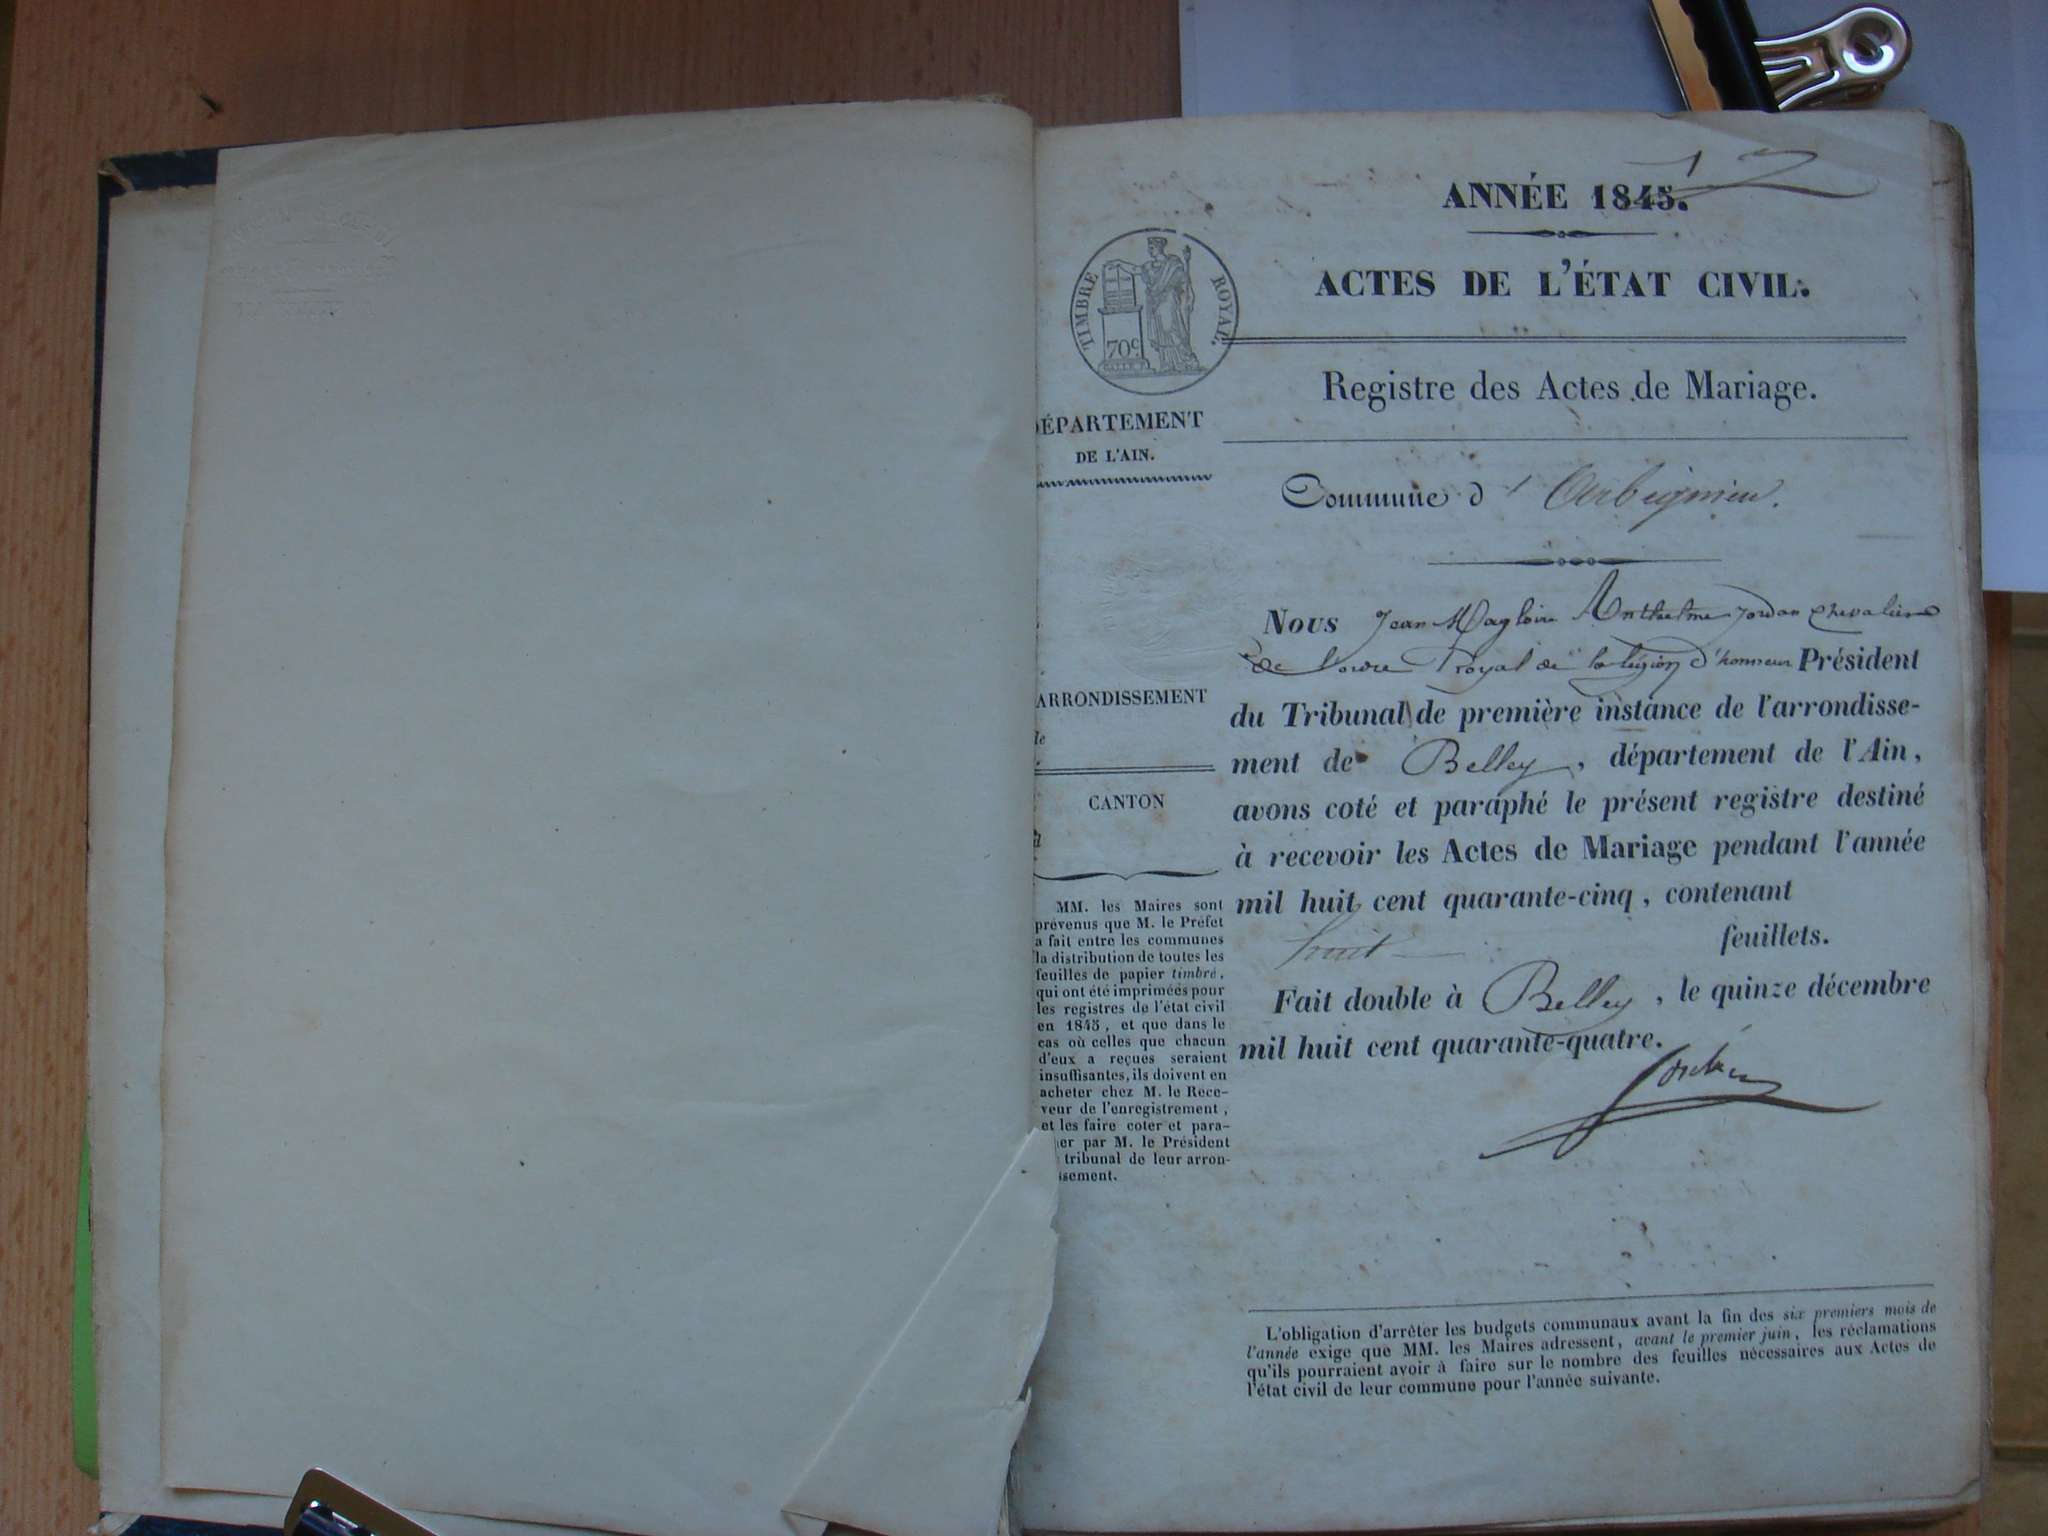 1
ANNÉE 1845.
ACTES DE L'ÉTAT CIVIL.
TIMBRE ROYAL.
70c.
Registre des Actes de Mariage.
DÉPARTEMENT
DE L'AIN.
Commune d'Arbignieu.
ARRONDISSEMENT
de
CANTON
MM. les Maires sont
prévenus que M. le Préfet
a fait entre les communes
la distribution de toutes les
feuilles de papier timbré,
qui ont été imprimées pour
les registres de l'état civil
en 1845, et que dans le
cas où celles que chacun
d'eux a reçues seraient
insuffisantes, ils doivent en
acheter chez M. le Rece-
veur de l'enregistrement,
et les faire coter et para-
her par M. le Président
tribunal de leur arron-
ssement.
Nous Jean Magloire Anthelme Jordan Chevalier
de l'ordre Royal de la légion d'honneur Président
du Tribunal de première instance de l'arrondisse-
ment de Belley, département de l'Ain,
avons coté et paraphé le présent registre destiné
à recevoir les Actes de Mariage pendant l'année
mil huit cent quarante-cinq, contenant
huit feuillets.
Fait double à Belley, le quinze décembre
mil huit cent quarante-quatre.
L'obligation d'arrêter les budgets communaux avant la fin des six premiers mois de
l'année exige que MM. les Maires adressent, avant le premier juin, les réclamations
qu'ils pourraient avoir à faire sur le nombre des feuilles nécessaires aux Actes de
l'état civil de leur commune pour l'année suivante.